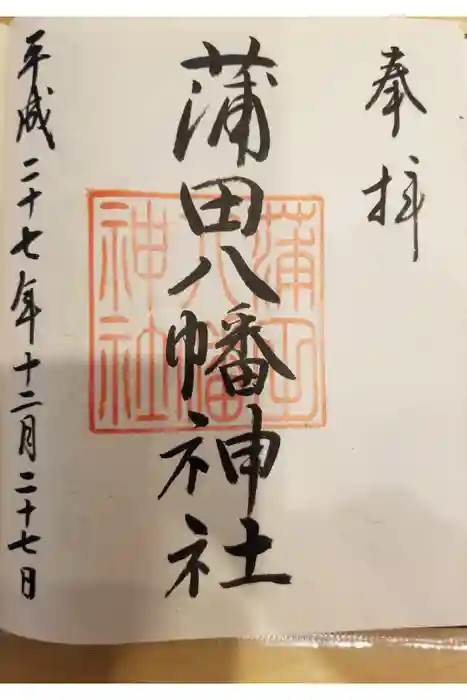 奉拝
蒲田八幡神社
蒲田
八幡
神社
平成二十七年十二月二十七日